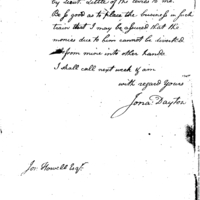 by Lieut. Little of the ... to me.
Be so good as to place the business in such
train that I may be assured that the
monies due to him cannot be diverted
from mine into other hands.
I shall call next week if am
with regard Yours
Jona Dayton
Jos. Howell Esqr.